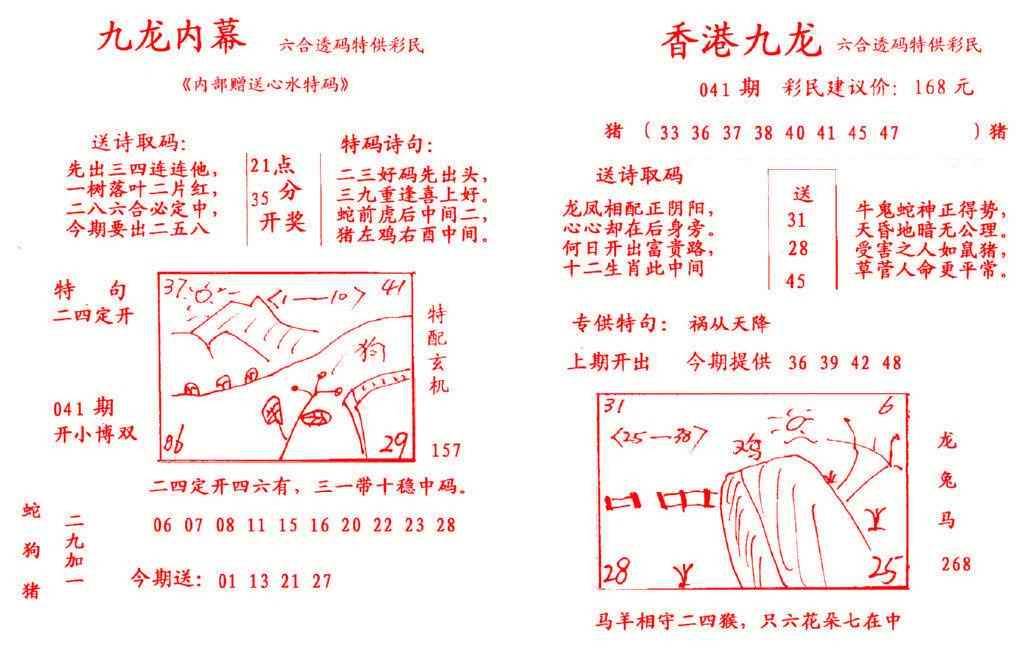 九龙内幕 六合透码特供彩民
《内部赠送心水特码》
送诗取码:
先出三四连连他,
一树落叶二片红,
二八六合必定中,
今期要出二五八
21点
35分
开奖
特码诗句:
二三好码先出头,
三九重逢喜上好。
蛇前虎后中间二,
猪左鸡右酉中间。
特 句
二四定开
041期
开小博双
37 〈1—10〉 41
狗
06 29
特配玄机
157
二四定开四六有, 三一带十稳中码。
蛇狗猪
二九加一
06 07 08 11 15 16 20 22 23 28
今期送: 01 13 21 27
香港九龙 六合透码特供彩民
041期 彩民建议价: 168元
猪 ( 33 36 37 38 40 41 45 47 ) 猪
送诗取码
龙凤相配正阴阳,
心心却在后身旁。
何日开出富贵路,
十二生肖此中间
送
31
28
45
牛鬼蛇神正得势,
天昏地暗无公理。
受害之人如鼠猪,
草菅人命更平常。
专供特句: 祸从天降
上期开出 今期提供 36 39 42 48
31 6
〈25—38〉 鸡
28 25
龙兔马
268
马羊相守二四猴, 只六花朵七在中